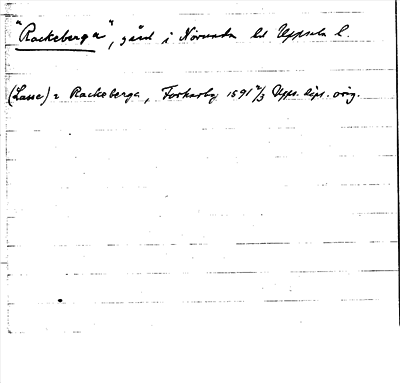 "Rackeberga", gård i Norunda hd Uppsala l.
(Lasse) i Rackeberga, Forkarby 1591 4/3 Upps. dipl. orig.